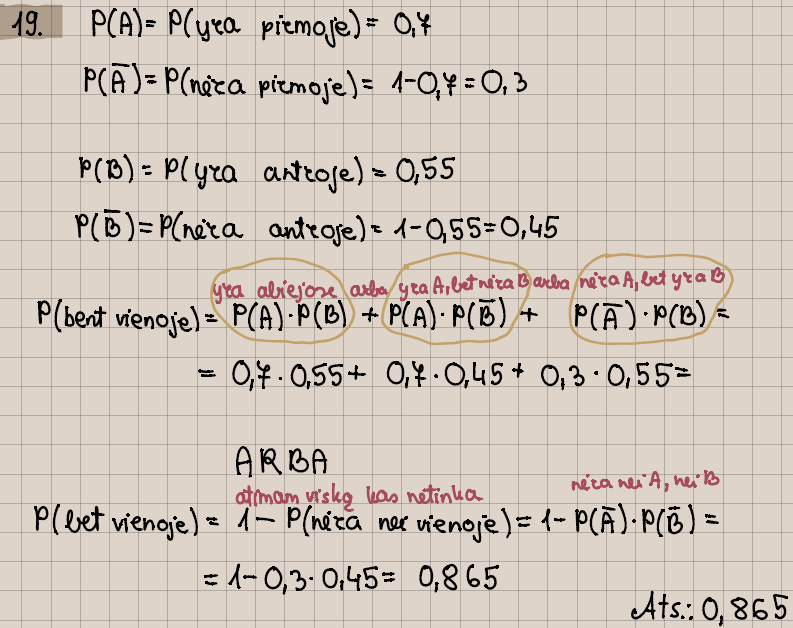 19. P(A)= P(yra pirmoje)= 0,7
P(Ā)= P(nėra pirmoje)= 1-0,7=0,3
P(B)= P(yra antroje)= 0,55
P(B̄)=P(nėra antroje)= 1-0,55=0,45
yra abiejose arba yra A, bet nėra B arba nėra A, bet yra B
P(bent vienoje)= P(A)·P(B) + P(A)·P(B̄) + P(Ā)·P(B)=
= 0,7·0,55+ 0,7·0,45+ 0,3·0,55=
ARBA
atimam viską kas netinka nėra nei A, nei B
P(bet vienoje)= 1- P(nėra nei vienoje)= 1- P(Ā)·P(B̄)=
= 1-0,3·0,45= 0,865
Ats.: 0,865